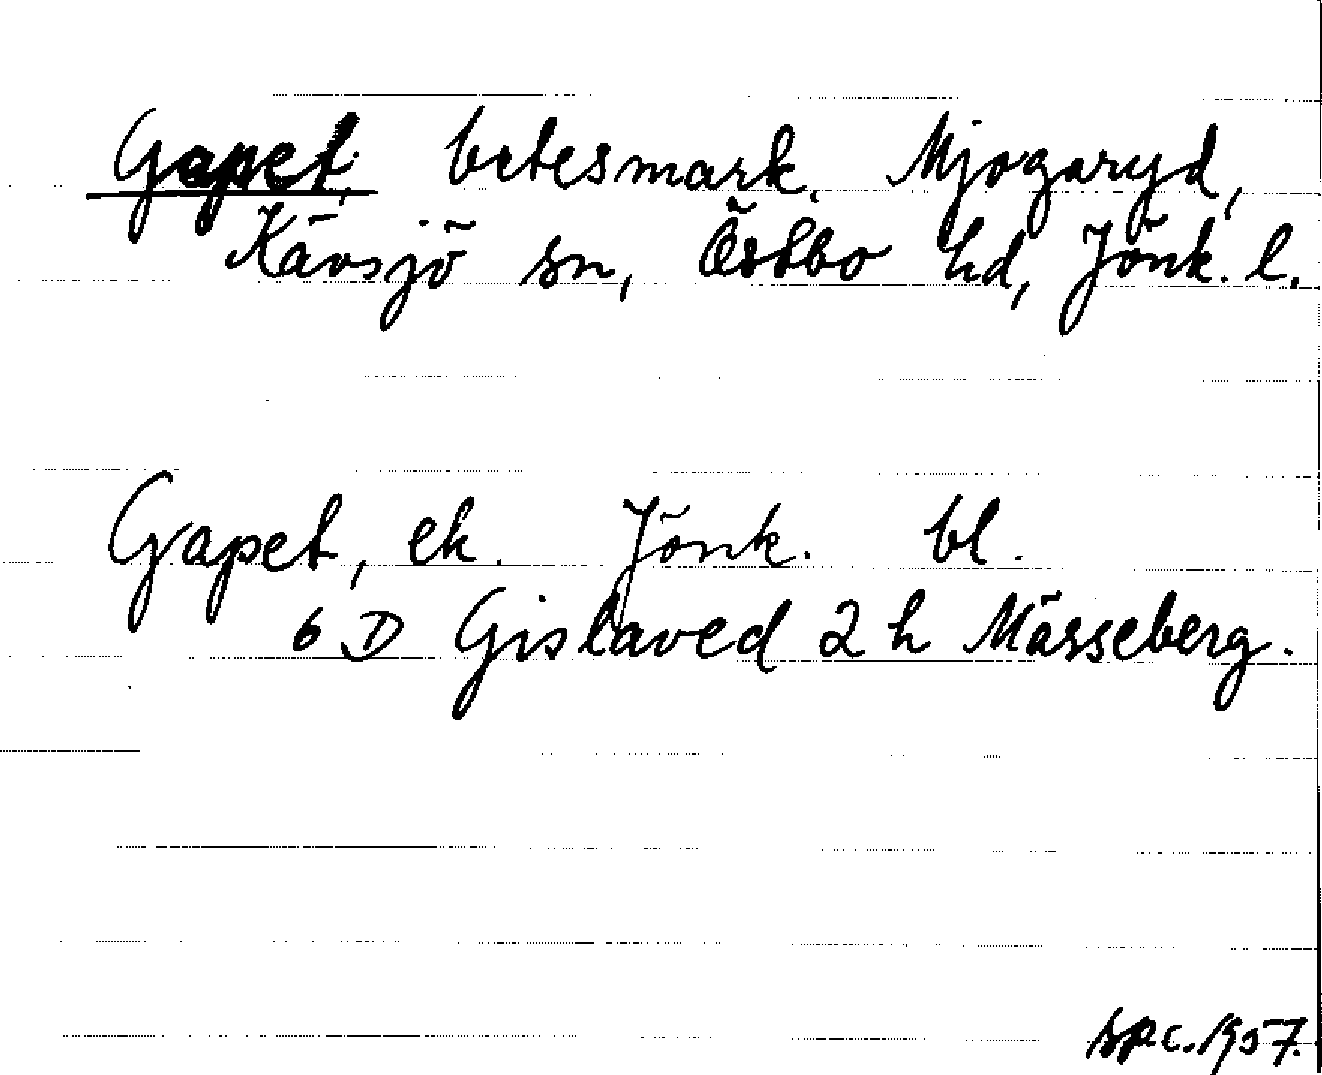 Gapet, betesmark. Mjogaryd,
Kävsjö sn, Östbo hd, Jönk. l.
Gapet, ek. Jönk. bl.
6 D Gislaved 2 h Mässeberg.
spc. 1957.